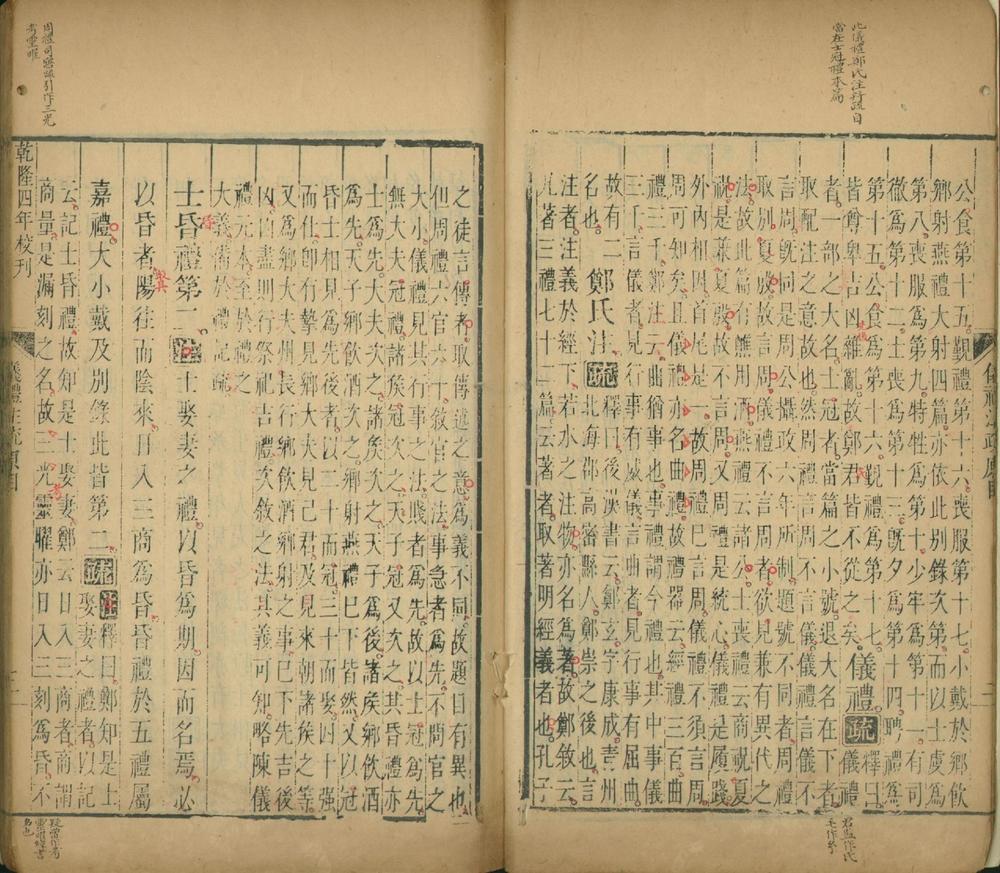 此儀禮鄭氏注賈疏自
當在士冠禮本篇
公食第十五覲禮第十六喪服第十七小戴於鄉飲
鄉射燕禮大射四篇亦依此別錄次第而以士虞爲
第八喪服爲第九特牲爲第十少牢爲第十一有司
徹爲第十二士喪爲第十三旣夕爲第十四聘禮爲
第十五公食爲第十六覲禮爲第十七儀禮疏釋曰
皆尊卑吉凶雜亂故鄭君皆不從之矣儀禮
者一部之大名士冠者當篇之小號退大名在下者
取配注之意故也然周禮言周不言儀儀禮言儀不
言周旣同是周公攝政六年所制題號不同者周禮
取別夏殷故言周儀禮不言周者欲見兼有異代之
法故此篇有醮用酒燕禮云諸公士喪禮云商祝夏
祝是兼夏殷故不言周又周禮是統心儀禮是履踐
外內相因首尾是一故周禮巳言周儀禮不須言周
周可知矣且儀禮亦名曲禮故禮器云經禮三百曲
禮三千鄭注云曲猶事也事禮謂今禮也其中事儀
三千言儀者見行事有威儀言曲者見行事有屈曲
故有二鄭氏注疏釋曰後漢書云鄭玄字康成靑州
名也北海郡高密縣人鄭崇之後也言
注者注義於經下若水之注物亦名爲著故鄭敘云
凡著三禮七十二篇云著者取著明經義者也孔子
之徒言傳者取傳述之意爲義不同故題目有異也
但周禮六官六十敘官之法事急者爲先不問官之
大小儀禮見其行事之法賤者爲先故以士冠爲先
無大夫冠禮諸矦冠次之天子冠又次之其昏禮亦
士爲先大夫次之諸矦次之天子爲後諸矦鄉飲酒
爲先天子鄉飲酒次之鄉射燕禮巳下皆然又以冠
昏士相見爲先後者以二十而冠三十而娶四十强
而仕卽有摯見鄉大夫見己君及見來朝諸矦之等
又爲鄉大夫州長行鄉飲酒鄉射之事巳下先吉後
凶凶盡則行祭祀吉禮次敘之法其義可知略陳儀
禮元本至於禮之
大義備於禮記疏
士昏禮第二注士娶妻之禮以昏爲期因而名焉必
以昏者陽往而陰來日入三商爲昏昏禮於五禮屬
嘉禮大小戴及別錄此皆第二疏注釋曰鄭知是士
娶妻之禮者以記
云記士昏禮故知是士娶妻鄭云日入三商者商謂
商量是漏刻之名故三光靈曜亦日入三刻爲昏不
乾隆四年校刊
儀禮注疏原目